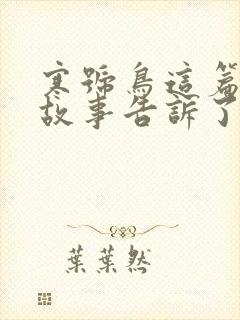 寒號鳥這篇
故事告訴了
葉葉然